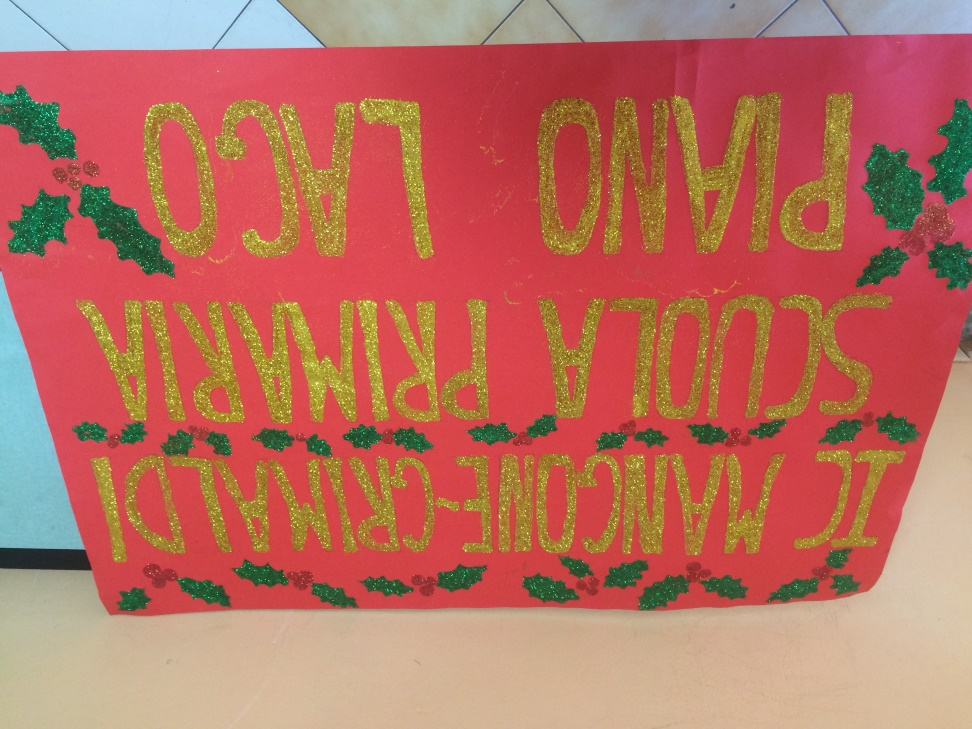 IC MANGONE-GRIMALDI
SCUOLA PRIMARIA
PIANO LAGO